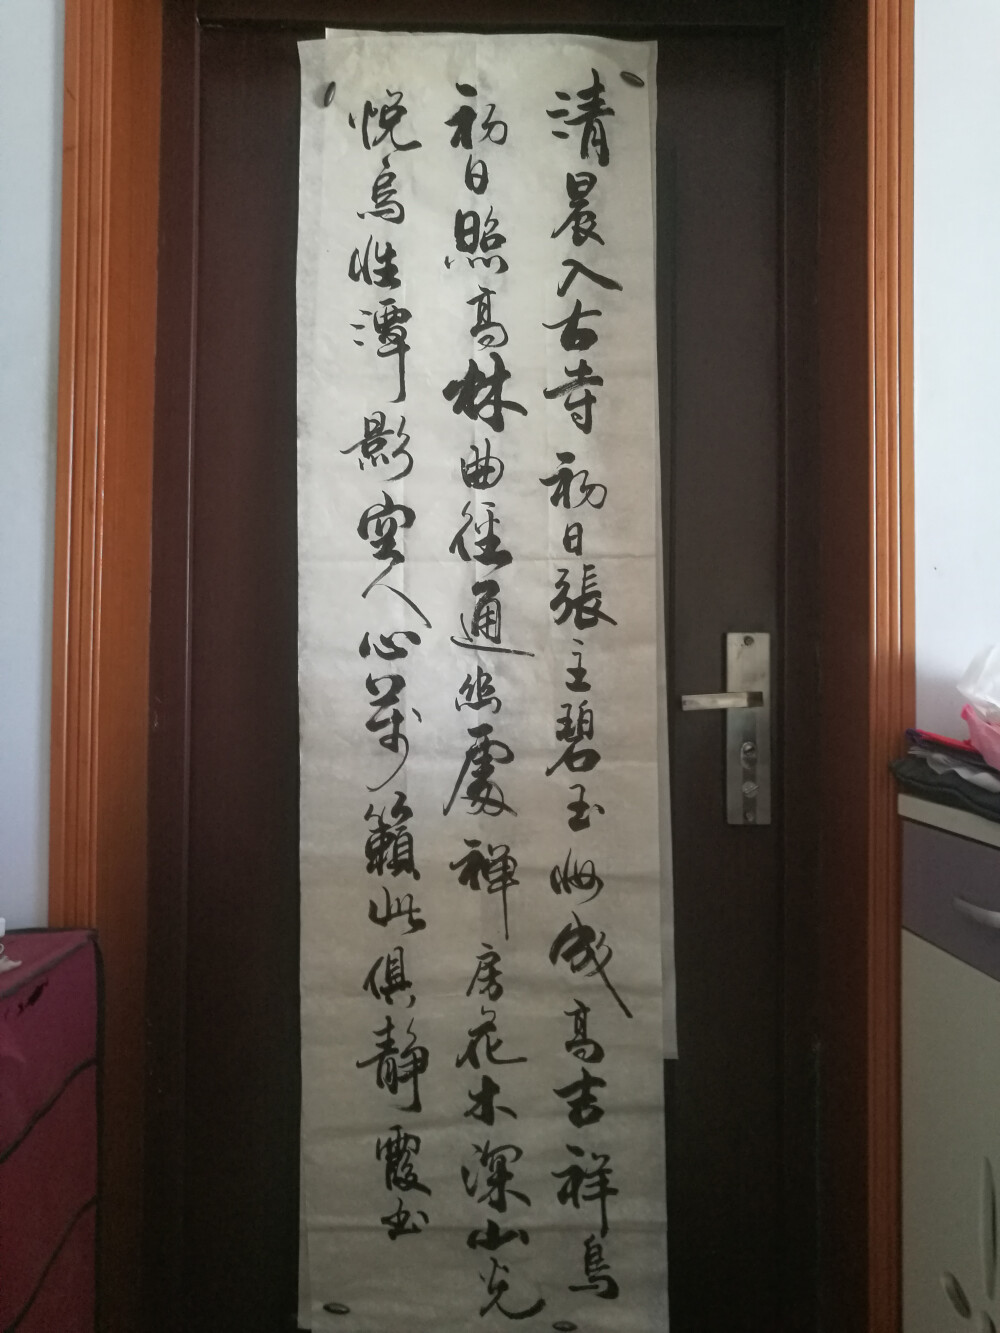 清晨入古寺初日張主碧玉妝成高吉祥鳥
初日照高林曲徑通幽處禅房花木深山光
悦鸟性潭影空人心萬籟此俱静霞书